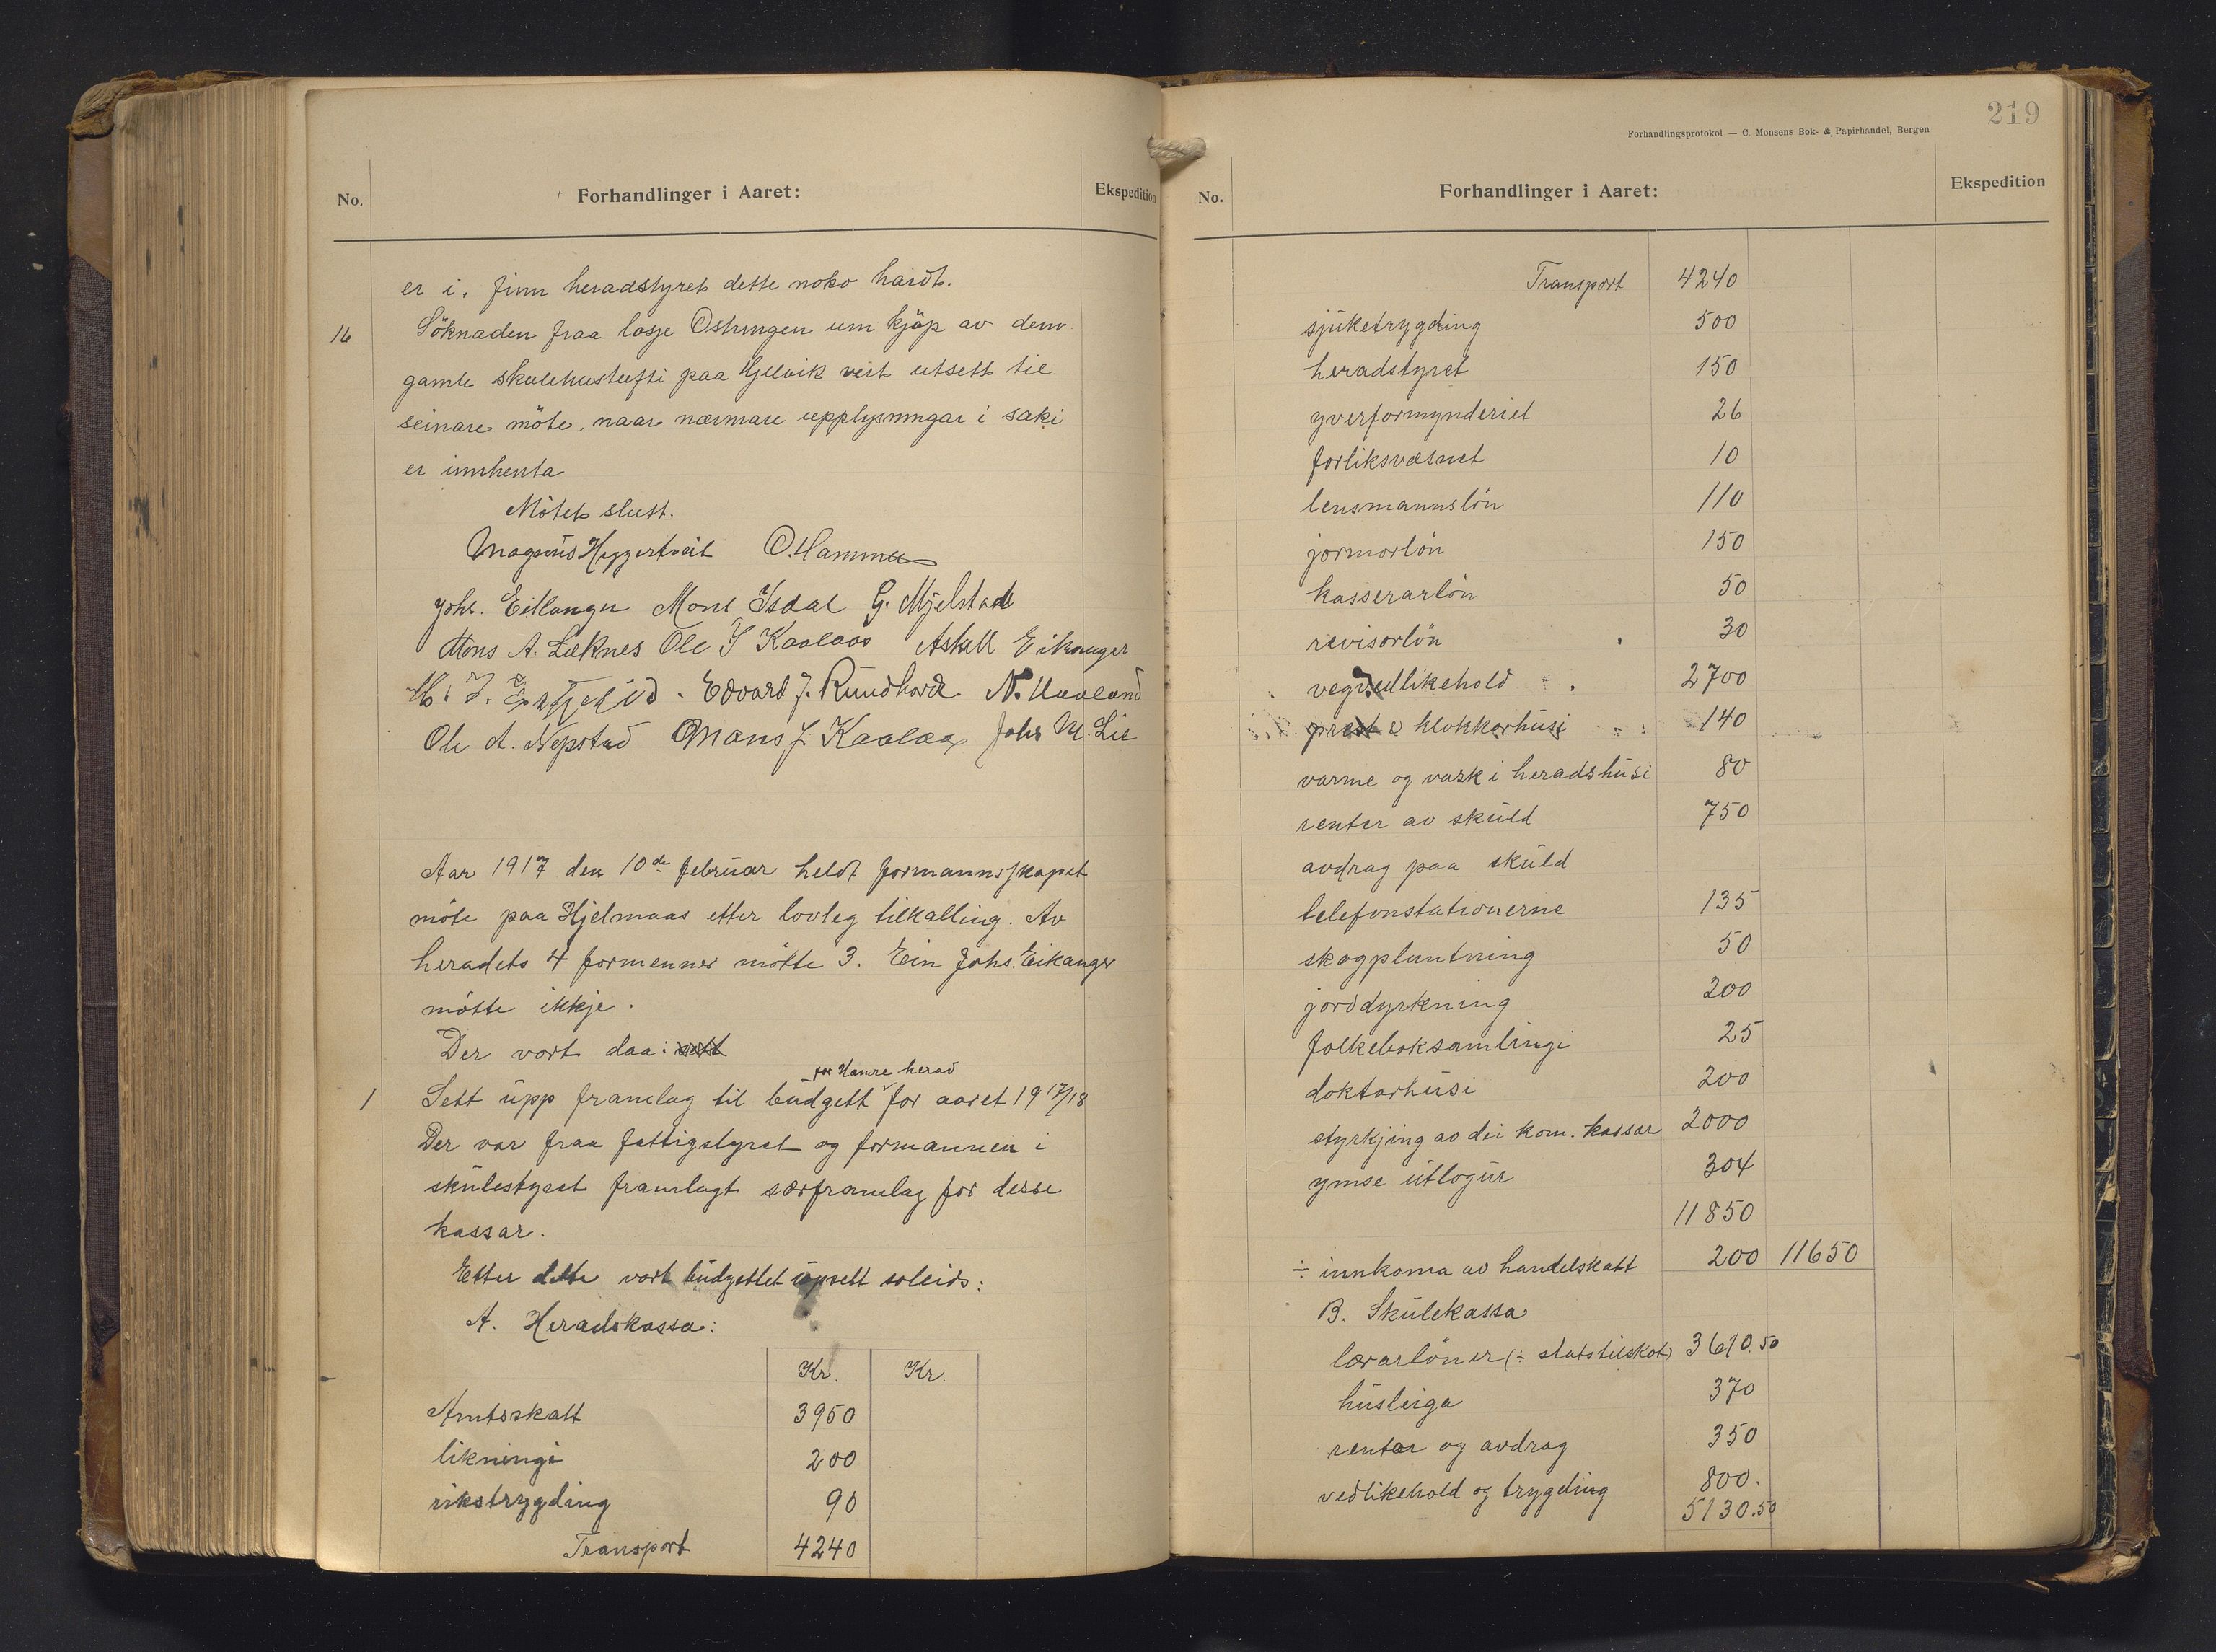 No. Forhandlinger i Aaret: Ekspedition
er i, finn heradstyret dette noko hardt.
16 Söknaden fraa losje Ostringen um kjöp av den
gamle skulehustufti paa Hjelvik vert utsett til
seinare möte, naar nærmare upplysningar i saki
er innhenta
Mötet slutt.
Magnus Heggertveit O. Hamme
Johs. Eikanger Mons Isdal G. Mjelstad
Mons A. Læknes Ole I Kaalaas Askell Eikanger
Edvard J. Rundhovde. N.
Ole A. Nepstad Mons J. Kaalaas Johs M. Lie
Aar 1917 den 10de februar heldt formannsskapet
möte paa Hjelmaas etter lovleg tilkalling. Av
heradets 4 formenner mötte 3. Ein Johs. Eikanger
mötte ikkje.
Der vort daa:
for Hamre herad
1 Sett upp framlag til budgett for aaret 1917/18
Der var fraa fattigstyret og formannen i
skulestyret framlagt særframlag for desse
kassar.
Etter dette vort budgettet upsett soleids:
A. Heradskassa:
Kr. Kr.
Amtsskatt 3950
likningi 200
rikstrygding 90
Transport 4240
219
Forhandlingsprotokol — C. Monsens Bok- & Papirhandel, Bergen
No. Forhandlinger i Aaret: Ekspedition
Transport 4240
sjuketrygding 500
heradstyret 150
yverformynderiet 26
forliksvæsnet 10
lensmannslön 110
jormorlön 150
kasserarlön 50
revisorlön 30
vegvedlikehold 2700
prest & klokkerhusi 140
varme og vask i heradshusi 80
renter av skuld 750
avdrag paa skuld
telefonstationerne 135
skogplantning 50
jorddyrkning 200
folkeboksamlingi 25
doktorhusi 200
styrkjing av dei kom. kassar 2000
ymse utlogur 304
11850
÷ innkoma av handelskatt 200 11650
B. Skulekassa
lærarlöner (÷ statstilskot) 3610.50
husleiga 370
rentar og avdrag 350
vedlikehold og trygding 800.
5130.50